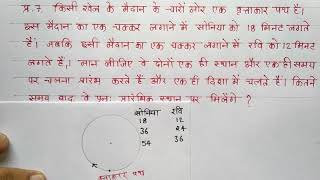 प्र.7. किसी खेल के मैदान के चारों ओर एक वृत्ताकार पथ है।
इस मैदान का एक चक्कर लगाने में सोनिया को 18 मिनट लगते
हैं। जबकि इसी मैदान का एक चक्कर लगाने में रवि को 12 मिनट
लगते हैं। मान लीजिए वे दोनों एक ही स्थान और एक ही समय
पर चलना प्रारंभ करते हैं और एक ही दिशा में चलते हैं। कितने
समय बाद वे पुनः प्रारंभिक स्थान पर मिलेंगे ?
सोनिया रवि
18 12
36 24
54 36